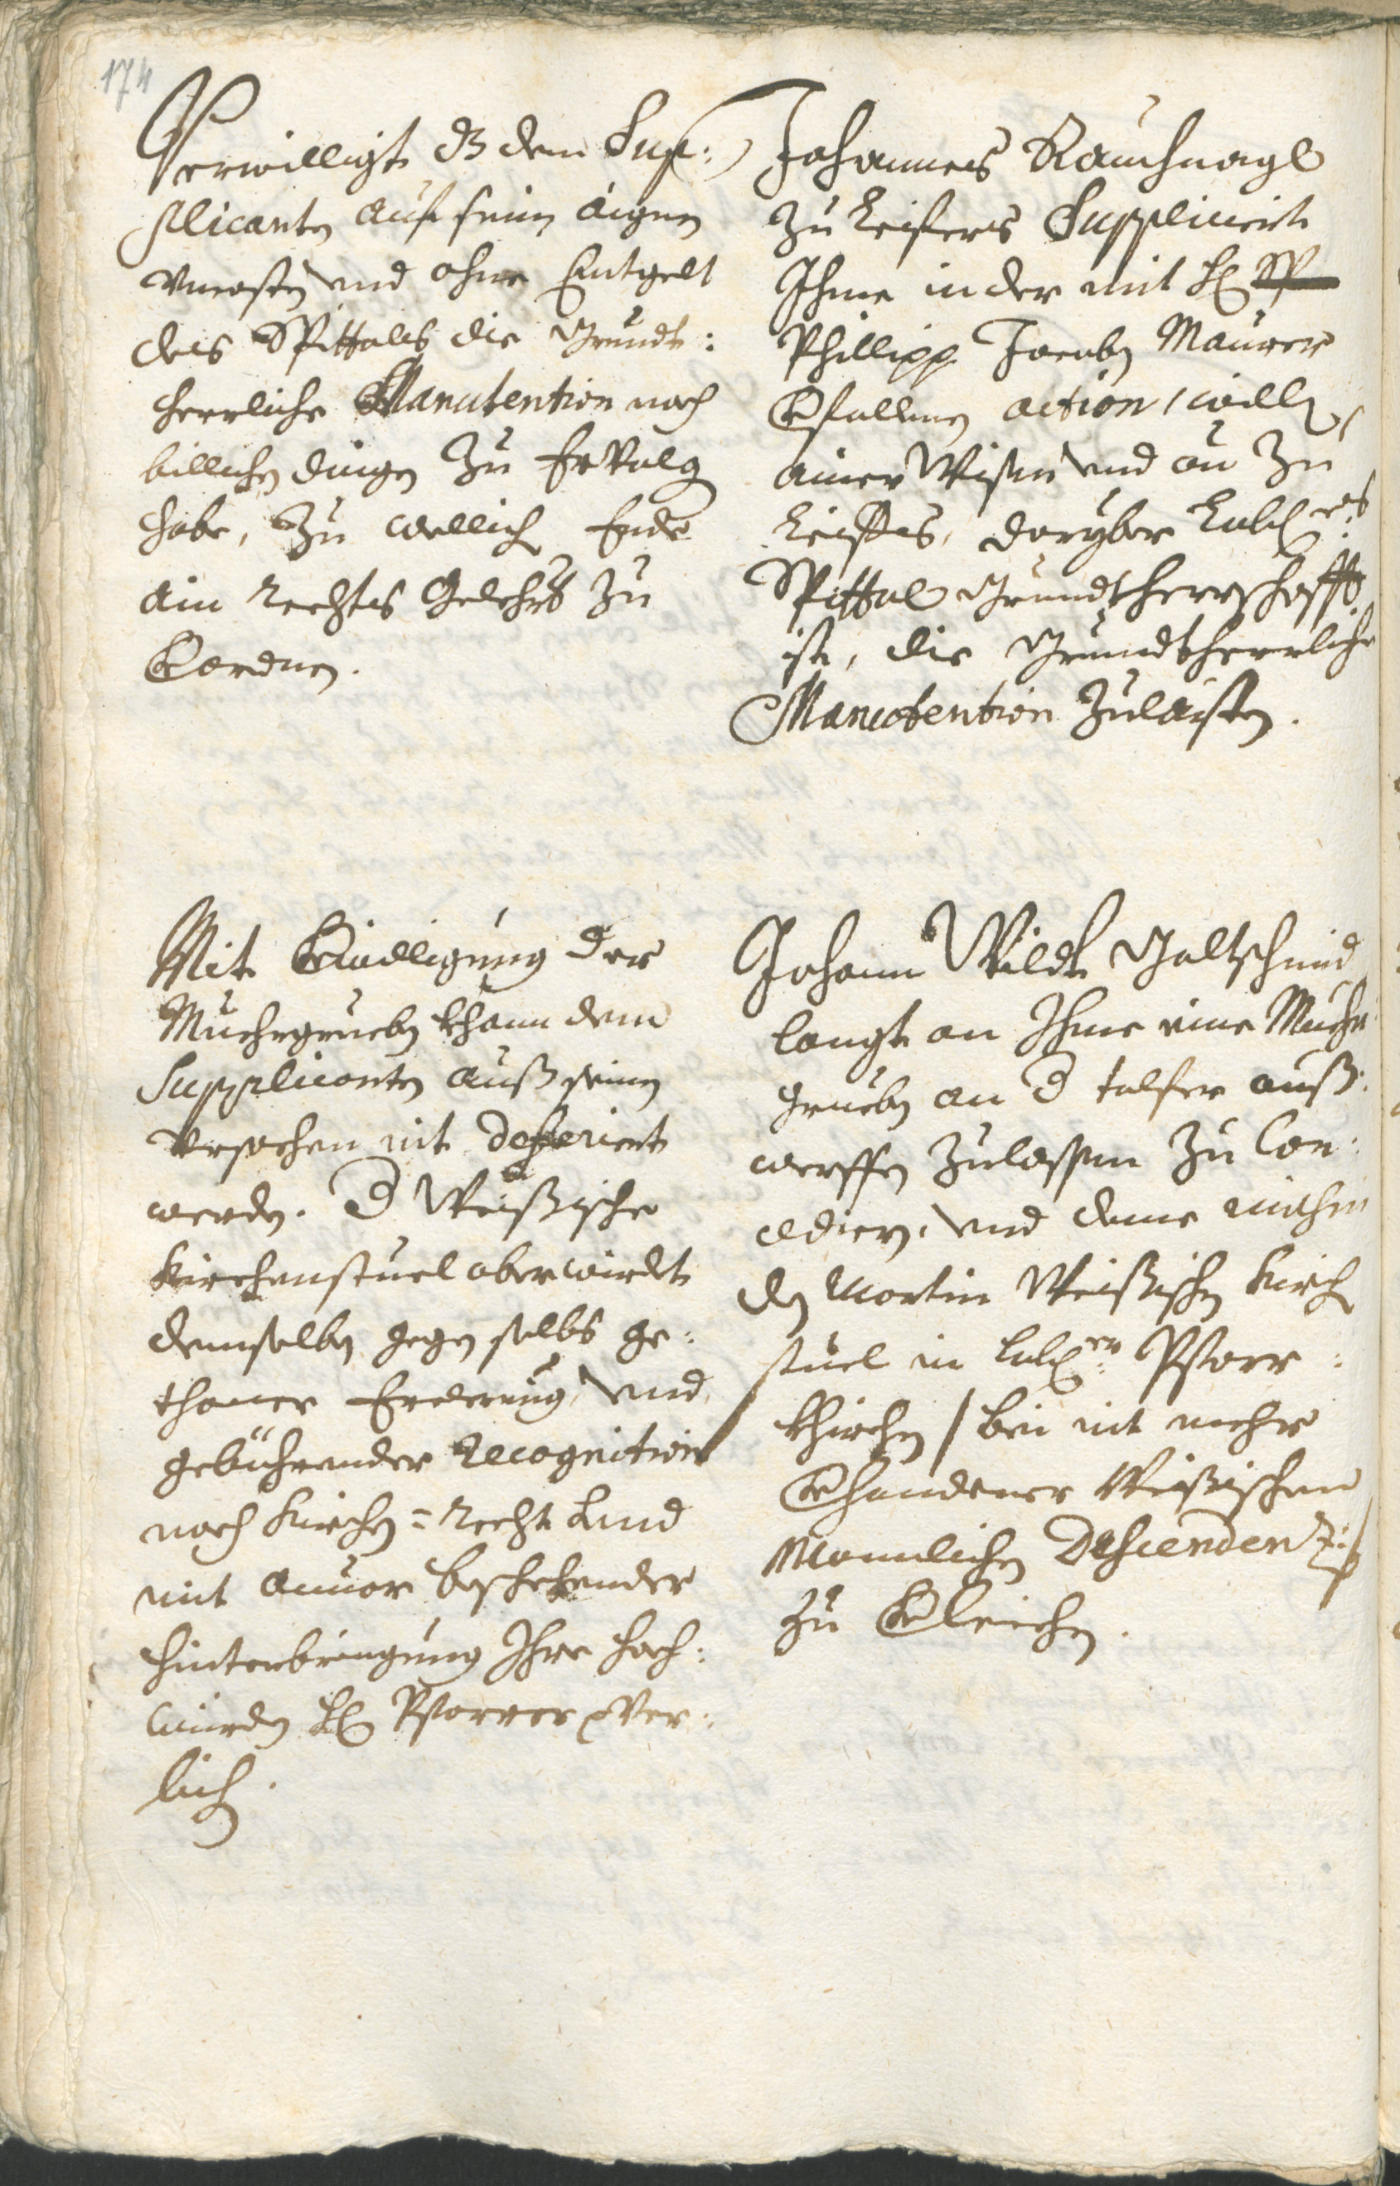 174
Verwilligt dz dem Sup:
plicanten auf seinen aignen
Uncosten und ohne Entgelt
des Spittals die Grundt:
herrliche Manutention nach
billichen dingen zu ervolg
habe, zu wellich Ende
ain rechtes Gelehrt zu
verordnen.
Johannes Rauchnagl
zu Leifers Suppliciert
Ihme in der mit H
Phillipp Jacoben Maurer
verfallnen action / willen
ainer Wisen und au zu
Leiffers, dariyber
Spittal Grundtherrschafft
ist, die Grundtherrliche
Manutention zulaisten.
Mit Verwilligung der
Muehrgrueben khann dem
Supplicanten auß seinen
Ursachen nit deferiert
werden. d Weißische
Kirchenstuel aber wirdt
demselben gegen selbs ge:
thoner und
gebührender recognition
nach Kirchen=recht und
mit anvor beschehender
hinterbringung Ihro hoch:
würden H Pfarrer ver:
lichen.
Johann Wildt Goltschmid
langt an Ihme eine Muehr
grueben an d talfer auß:
werffen zulassen zu Con:
cedieren, und deme mithin
den Martin Weißischen Kirch
stuel in Pfarr:
khirchen / bei nit mehr
verhandener Weißischen
Mannlichen Descendenz /
zu verleichen.